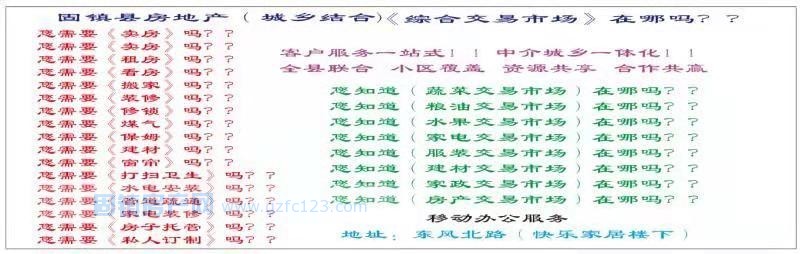 固镇县房地产（城乡结合）《综合交易市场》在哪吗？？
您需要《卖房》吗？？
您需要《卖房》吗？？
您需要《租房》吗？？
您需要《看房》吗？？
您需要《搬家》吗？？
您需要《装修》吗？？
您需要《修锁》吗？？
您需要《煤气》吗？？
您需要《保姆》吗？？
您需要《建材》吗？？
您需要《窗帘》吗？？
您需要《打扫卫生》吗？？
您需要《水电安装》吗？？
您需要《管道疏通》吗？？
您需要《家电装修》吗？？
您需要《房子托管》吗？？
您需要《私人订制》吗？？
客户服务一站式！！中介城乡一体化！！
全县联合 小区覆盖 资源共享 合作共赢
您知道（蔬菜交易市场）在哪吗？？
您知道（粮油交易市场）在哪吗？？
您知道（水果交易市场）在哪吗？？
您知道（家电交易市场）在哪吗？？
您知道（服装交易市场）在哪吗？？
您知道（建材交易市场）在哪吗？？
您知道（家政交易市场）在哪吗？？
您知道（房产交易市场）在哪吗？？
移动办公服务
地址：东风北路（快乐家居楼下）